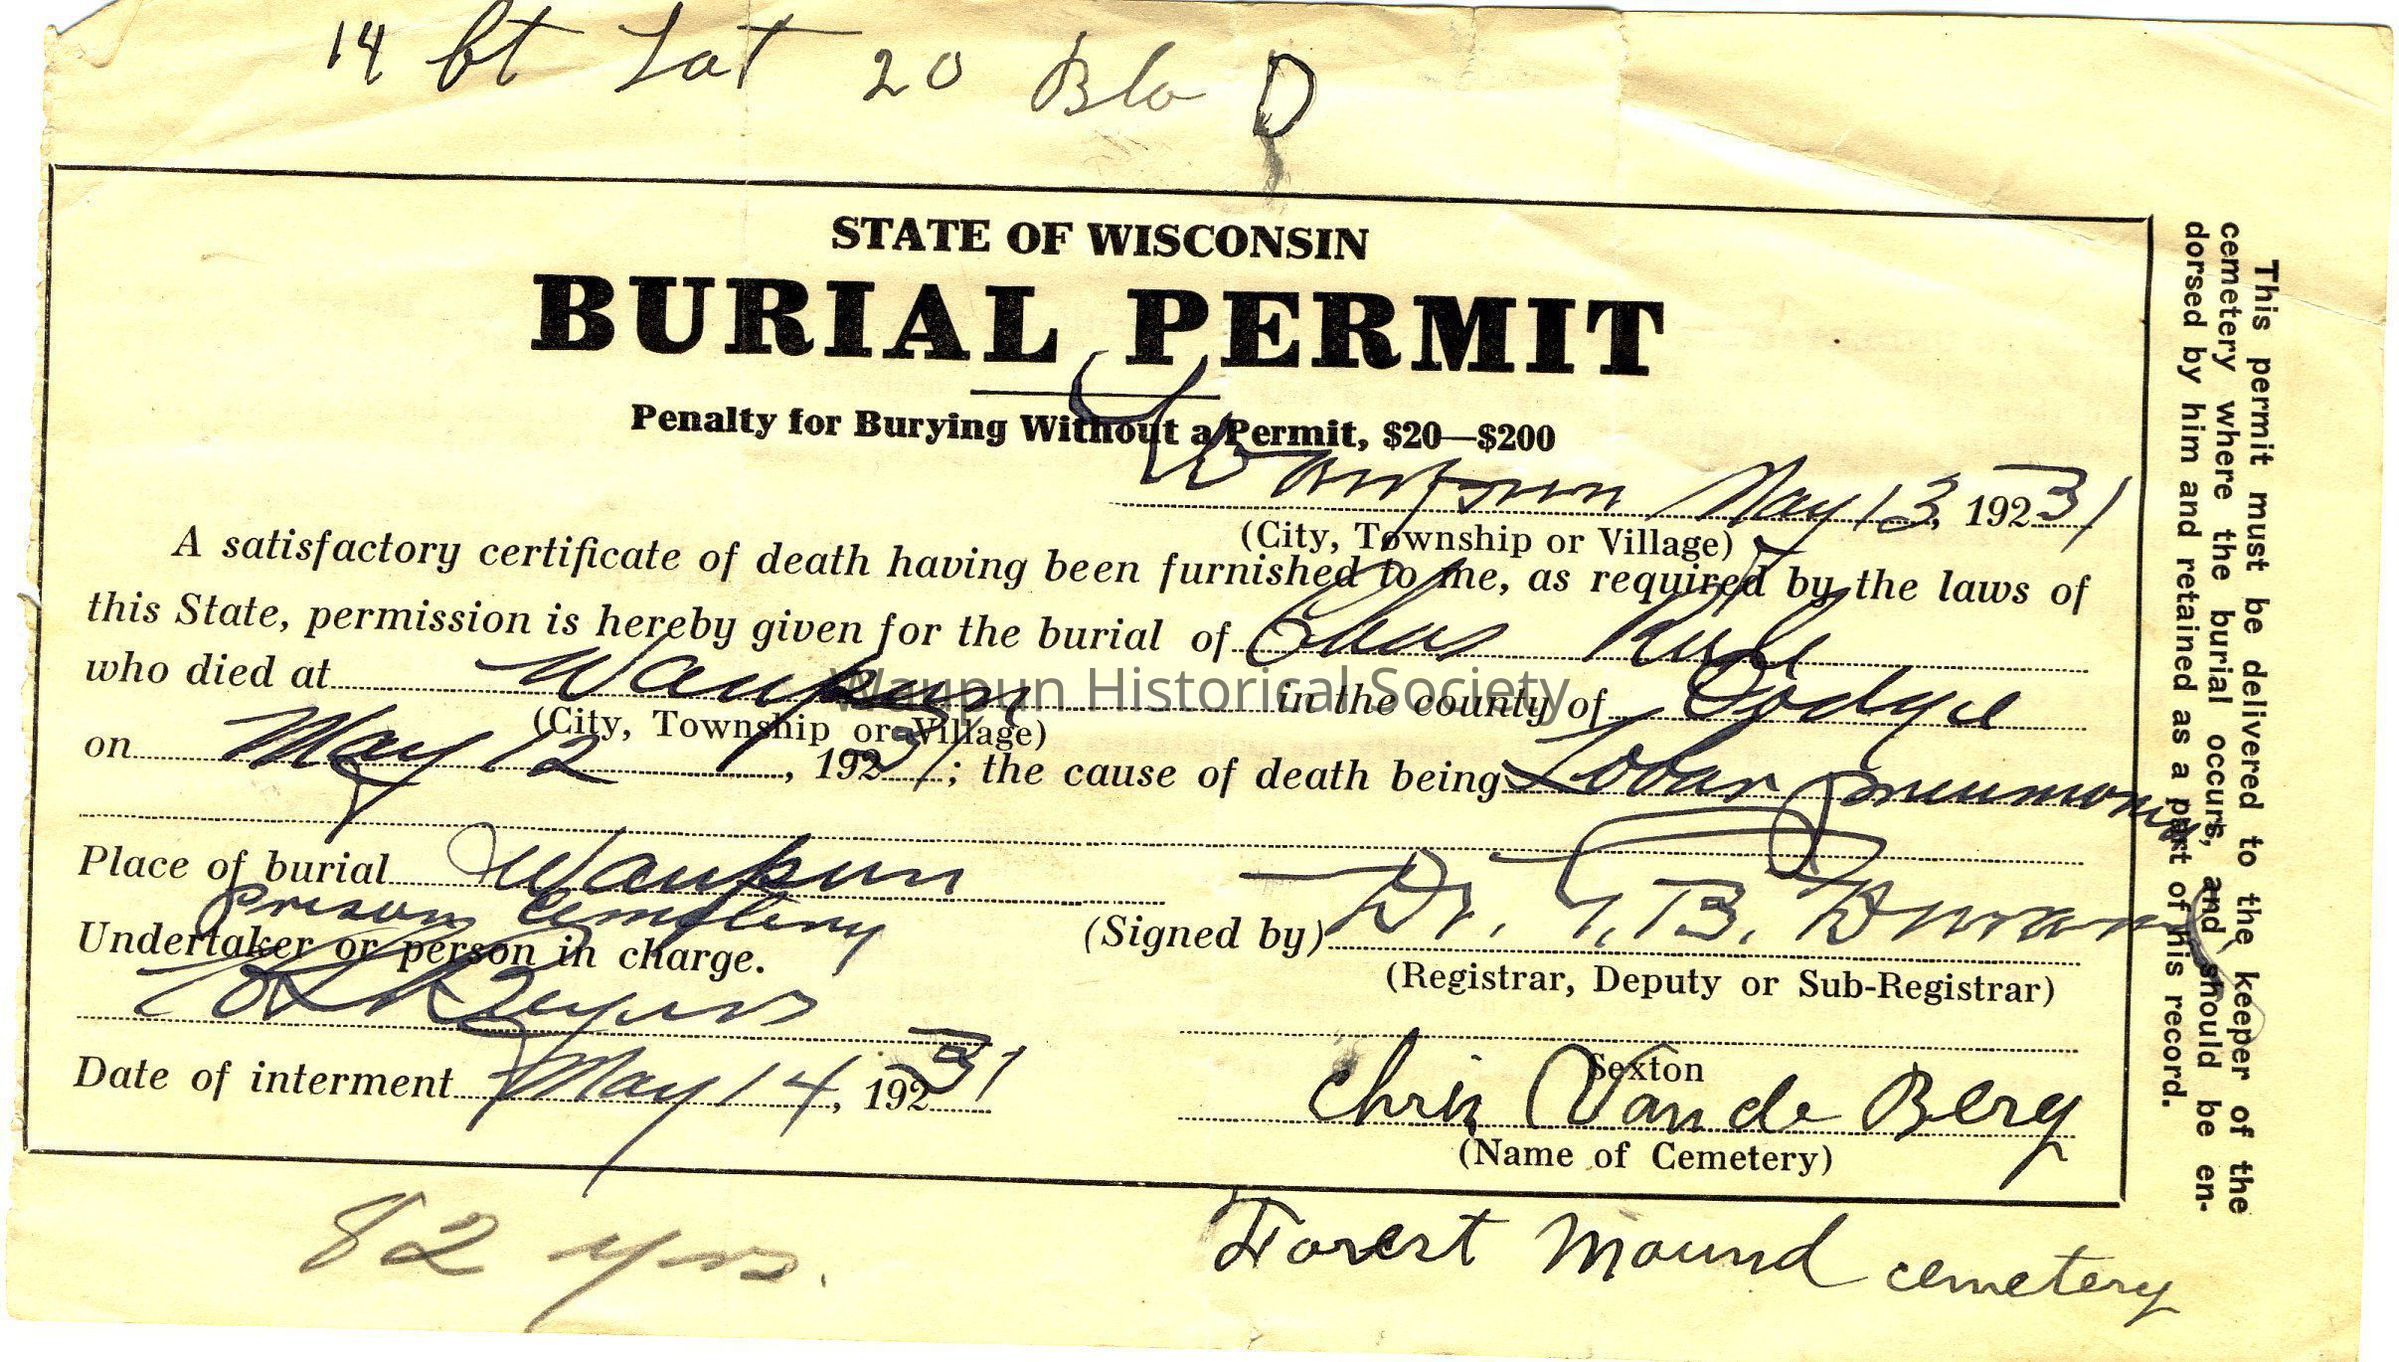 14 bt Lot 20 Blo D
STATE OF WISCONSIN
BURIAL PERMIT
Penalty for Burying Without a Permit, $20—$200
Waupun May 13, 19231
(City, Township or Village)
A satisfactory certificate of death having been furnished to me, as required by the laws of
this State, permission is hereby given for the burial of Chas
who died at Waupun in the county of Dodge
(City, Township or Village)
on May 12, 19231; the cause of death being Lobar pneumonia
Place of burial Waupun
Prison Cemetery
Undertaker or person in charge.
Date of interment May 14, 19231
(Signed by) Dr. B.
(Registrar, Deputy or Sub-Registrar)
Sexton
Chris Van de Berg
(Name of Cemetery)
Forest Mound cemetery
82 yrs.
This permit must be delivered to the keeper of the
cemetery where the burial occurs, and should be en-
dorsed by him and retained as a part of his record.
Waupun Historical Society